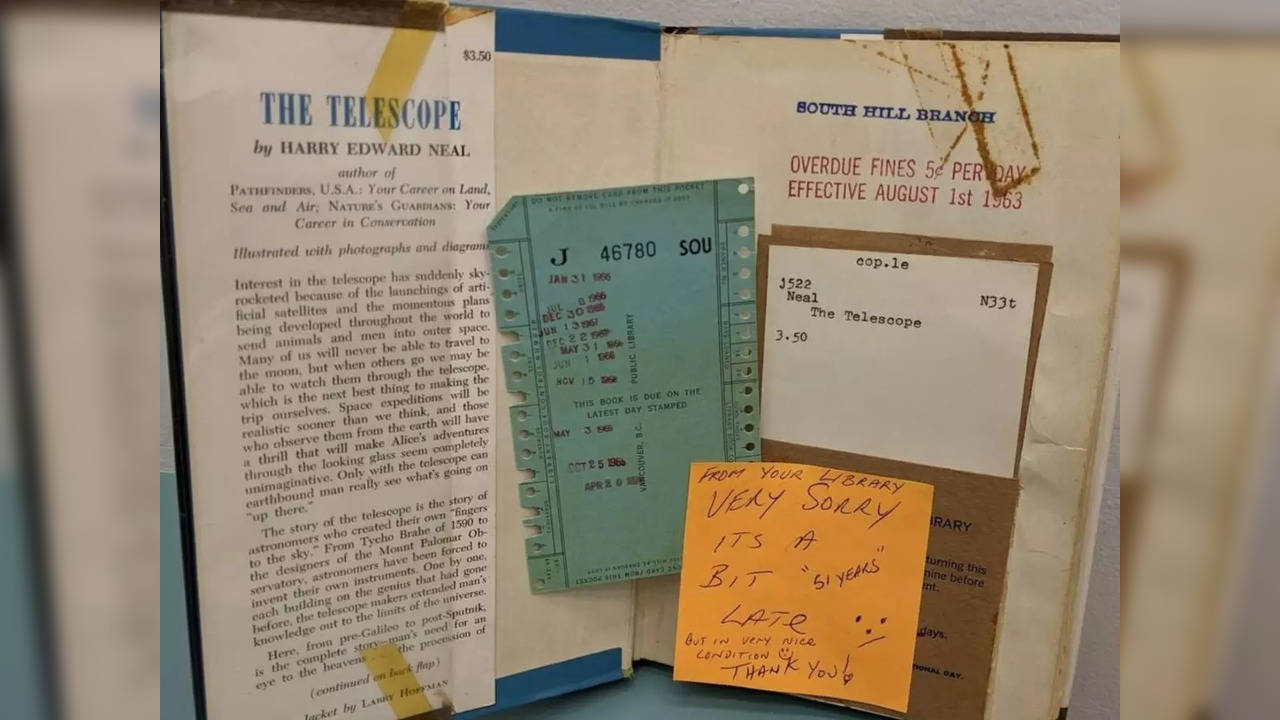 $3.50
THE TELESCOPE
by HARRY EDWARD NEAL
author of
PATHFINDERS, U.S.A.: Your Career on Land,
Sea and Air; NATURE'S GUARDIANS: Your
Career in Conservation
Illustrated with photographs and diagrams
Interest in the telescope has suddenly sky-
rocketed because of the launchings of arti-
ficial satellites and the momentous plans
being developed throughout the world to
send animals and men into outer space.
Many of us will never be able to travel to
the moon, but when others go we may be
able to watch them through the telescope,
which is the next best thing to making the
trip ourselves. Space expeditions will be
realistic sooner than we think, and those
who observe them from the earth will have
a thrill that will make Alice's adventures
through the looking glass seem completely
unimaginative. Only with the telescope can
earthbound man really see what's going on
"up there."
The story of the telescope is the story of
astronomers who created their own "fingers
to the sky." From Tycho Brahe of 1590 to
the designers of the Mount Palomar Ob-
servatory, astronomers have been forced to
invent their own instruments. One by one,
each building on the genius that had gone
before, the telescope makers extended man's
knowledge out to the limits of the universe.
Here, from pre-Galileo to post-Sputnik,
is the complete story—man's need for an
eye to the heavens the procession of
(continued on back flap)
Jacket by LARRY HOFFMAN
DO NOT REMOVE CARD FROM THIS POCKET
J 46780 SOU
JAN 31 1966
DEC 30
JUN 13 1967
DEC 22
MAY 31
JUN 1 1968
NOV 15
THIS BOOK IS DUE ON THE
LATEST DAY STAMPED
MAY 3
OCT 25
APR 20
PUBLIC LIBRARY
VANCOUVER, B.C.
SOUTH HILL BRANCH
OVERDUE FINES 5¢ PER DAY
EFFECTIVE AUGUST 1st 1963
cop.le
J522
Neal N33t
The Telescope
3.50
FROM YOUR LIBRARY
VERY SORRY
ITS A
BIT "51 YEARS"
LATE
BUT IN VERY NICE
CONDITION
THANK YOU!
RARY
turning this
before
nt.
days.
IONAL DAY.